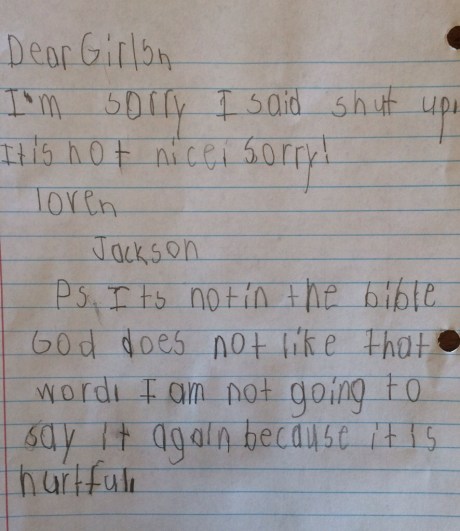 Dear Girlsn
I'm sorry I said shut up.
It is not nice. Sorry!
loren
Jackson
Ps. Its not in the bible
God does not like that
word. I am not going to
say it again because it is
hurtful.